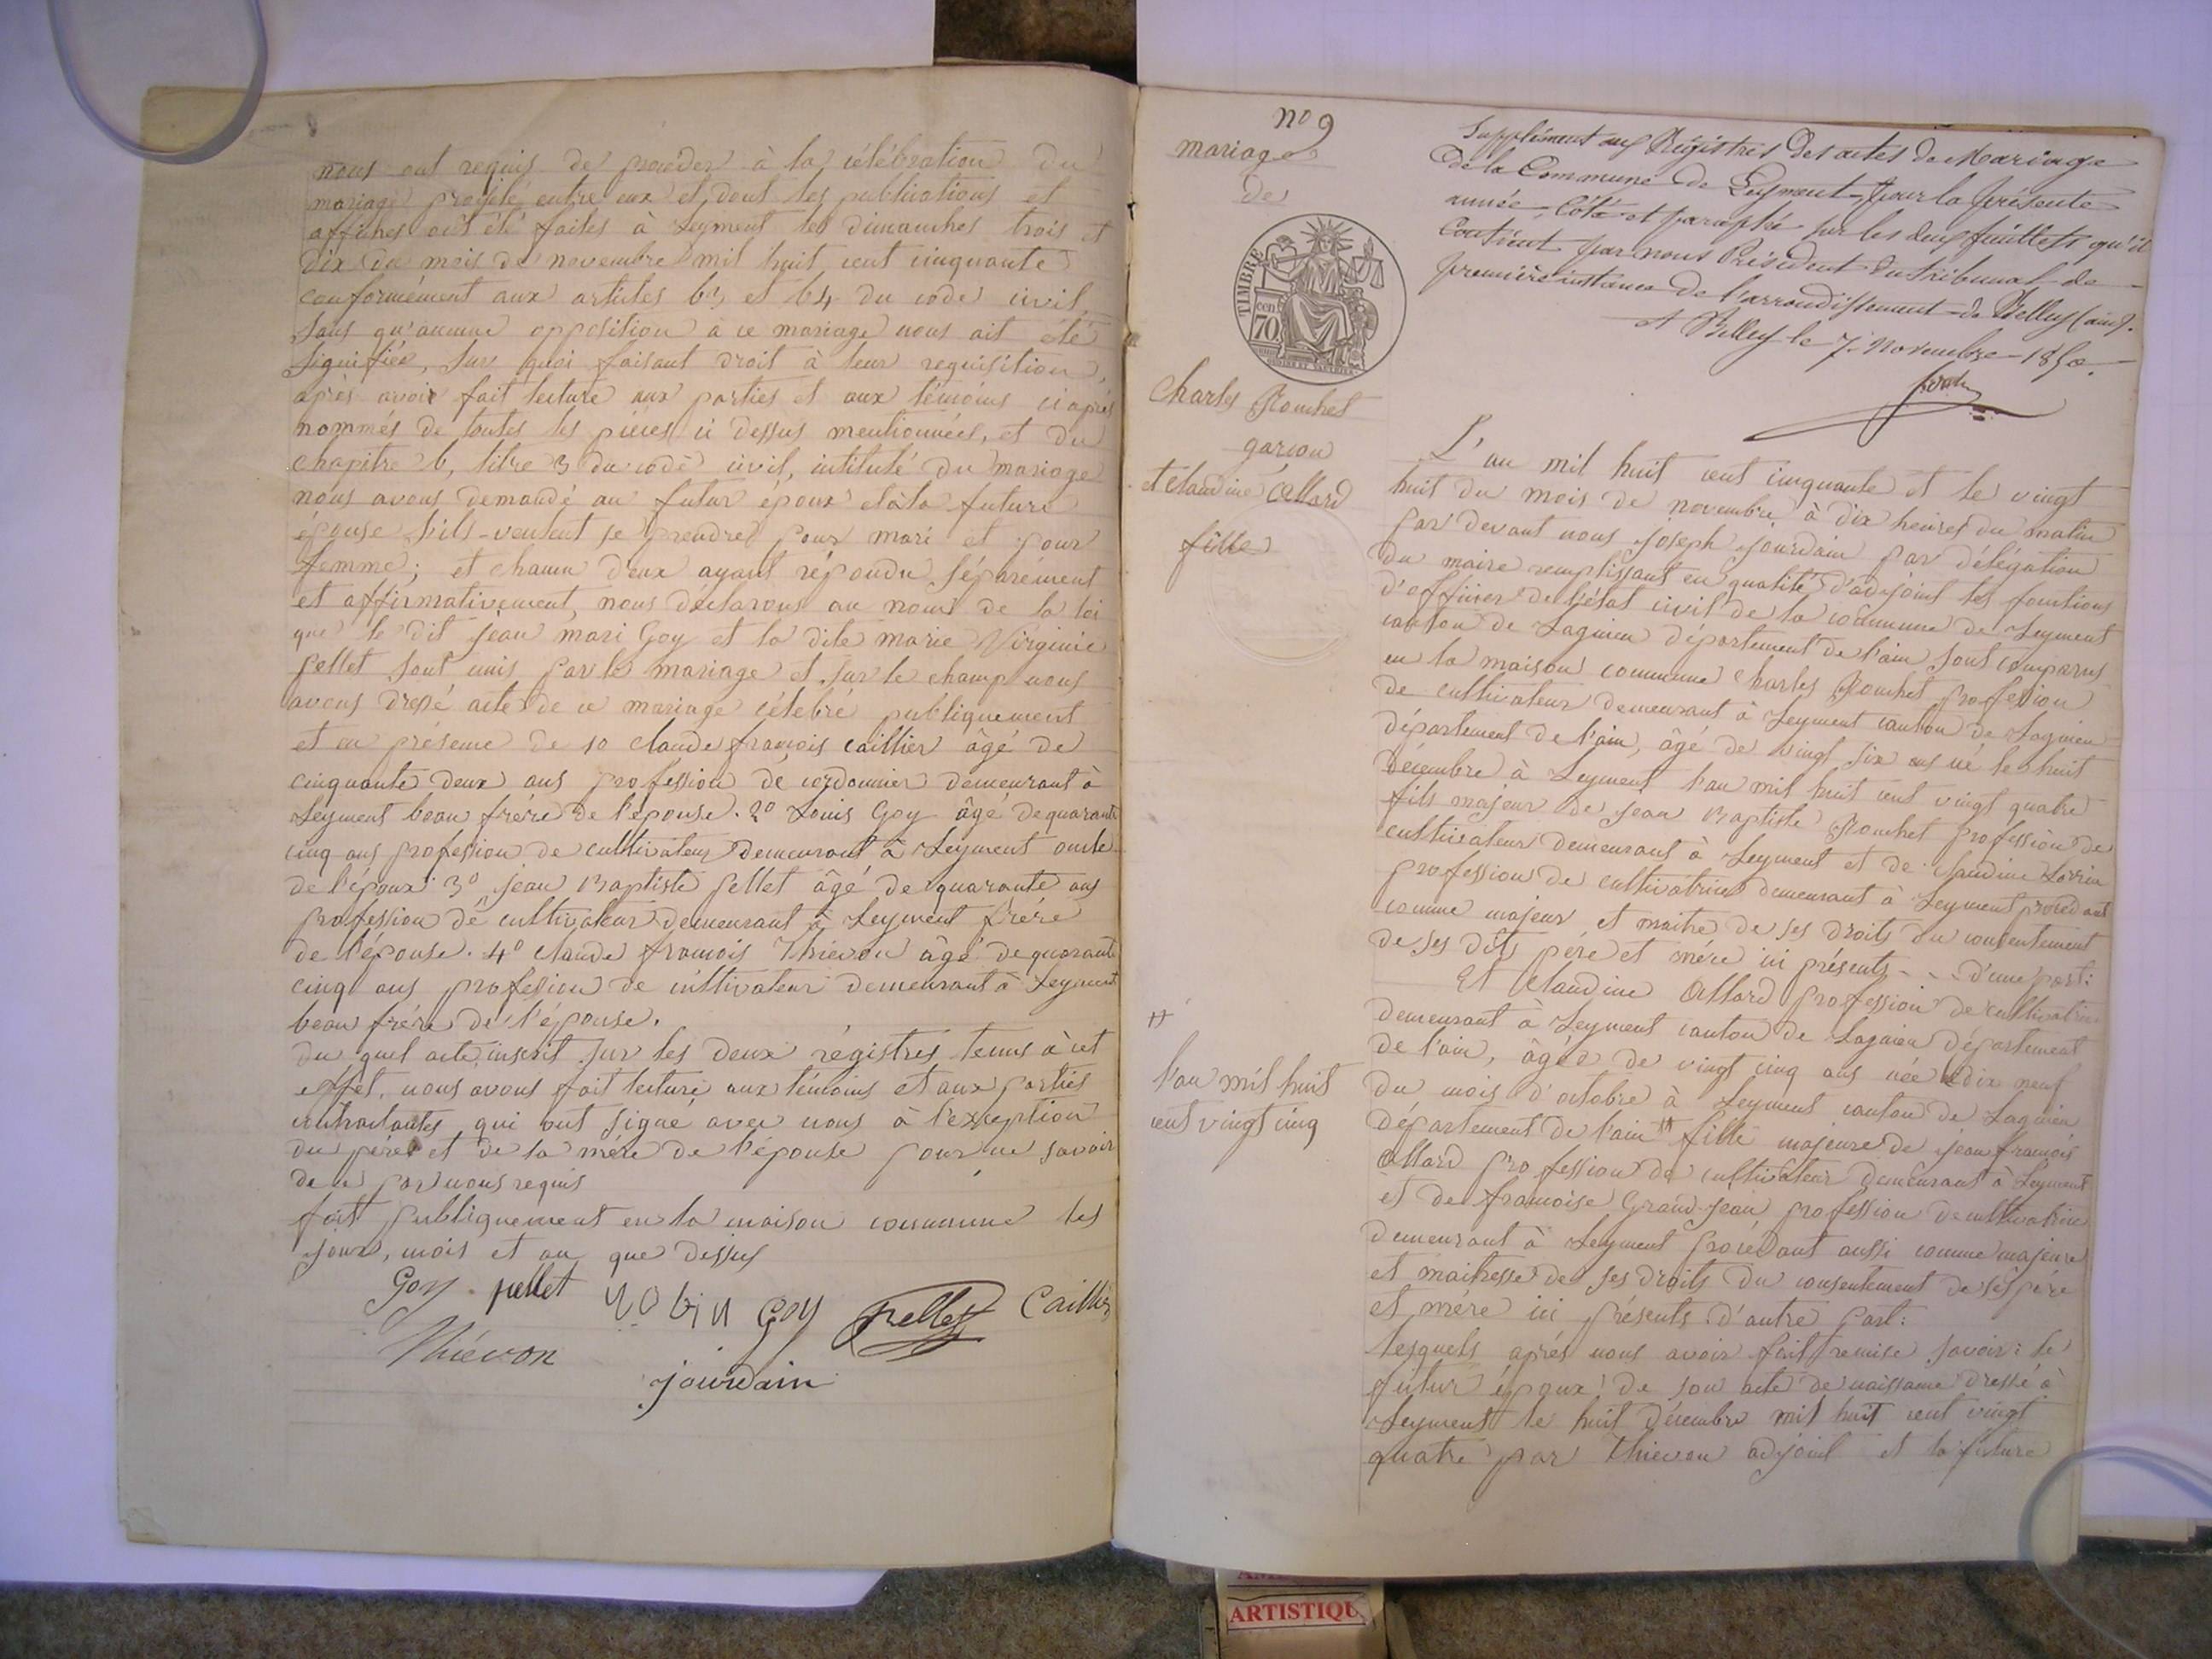 nous ont requis de procéder à la célébration du
mariage projeté entre eux et dont les publications et
affiches ont été faites à Leyment les dimanches trois et
dix du mois de novembre mil huit cent cinquante
conformément aux articles 63 et 64 du code civil,
sans qu'aucune opposition à ce mariage nous ait été
signifiée, sur quoi faisant droit à leur requisition,
après avoir fait lecture aux parties et aux témoins ci après
nommés de toutes les pièces ci dessus mentionnées, et du
chapitre 6, titre 3 du code civil, intitulé du mariage
nous avons demandé au futur époux et à la future
épouse s'ils veulent se prendre pour mari et pour
femme; et chacun deux ayant répondu séparément
et affirmativement, nous déclarons au nom de la loi
que le dit jean mari Goy et la dite marie Virginie
pellet sont unis par le mariage et sur le champ nous
avons dressé acte de ce mariage célébré publiquement
et en présence de 10 claude françois caillier âgé de
cinquante deux ans profession de cordonnier demeurant à
Leyment beau frère de l'épouse. 2º Louis Goy âgé de quarante
cinq ans profession de cultivateur demeurant à Leyment oncle
de l'époux 3º jean Baptiste pellet âgé de quarante ans
profession de cultivateur demeurant à Leyment frère
de l'épouse. 4º claude françois Thiévon âgé de quarante
cinq ans profession de cultivateur demeurant à Leyment
beau frère de l'épouse.
du quel acte, inscrit sur les deux régistres tenus à cet
effet, nous avons fait lecture aux témoins et aux parties
contractantes qui ont signé avec nous à l'exception
du père et de la mère de l'épouse pour ne savoir
de ce par nous requis
fait publiquement en la maison commune les
jour, mois et an que dessus
Goy pellet robin Goy Pellet Caillier
Thiévon
jourdain
nº 9
mariage
de
TIMBRE
cen
70
Charles Rouchet
garcon
et Claudine Allard
fille
Supplément aux Régistres des actes de Mariage
de la Commune de Leyment pour la présente
année, Coté et paraphé sur les deux feuillets qu'il
Contient par nous Président du tribunal de
première instance de l'arrondissement de Belley (ain).
A Belley le 7 Novembre 1850.
L'an mil huit cent cinquante et le vingt
huit du mois de novembre à dix heures du matin
par devant nous joseph jourdain par délégation
du maire remplissant en qualité d'adjoint les fonctions
d'officier de l'état civil de la commune de Leyment
canton de Lagnieu département de l'ain sont comparus
en la maison commune Charles Rouchet profession
de cultivateur demeurant à Leyment canton de Lagnieu
département de l'ain, âgé de vingt six ans né le huit
décembre à Leyment l'an mil huit cent vingt quatre
fils majeur de jean Baptiste Rouchet profession de
cultivateur demeurant à Leyment et de claudine
profession de cultivatrice demeurant à Leyment procédant
comme majeur et maitre de ses droits du consentement
de ses dits père et mère ici présents - - d'une part:
Et Claudine Allard profession de cultivatrice
demeurant à Leyment canton de Lagnieu département
de l'ain, âgée de vingt cinq ans née le dix neuf
du mois d'octobre à Leyment canton de Lagnieu
département de l'ain # fille majeure de jean françois
#
l'an mil huit
cent vingt cinq
Allard profession de cultivateur demeurant à Leyment
et de francoise Grand-jean profession de cultivatrice
demeurant à Leyment procédant aussi comme majeure
et maitresse de ses droits du consentement de ses père
et mère ici présents d'autre part:
lesquels après nous avoir fait remise savoir: le
futur époux de son acte de naissance dressé à
Leyment le huit décembre mil huit cent vingt
quatre par Thievon adjoint et la future
ARTISTIQU